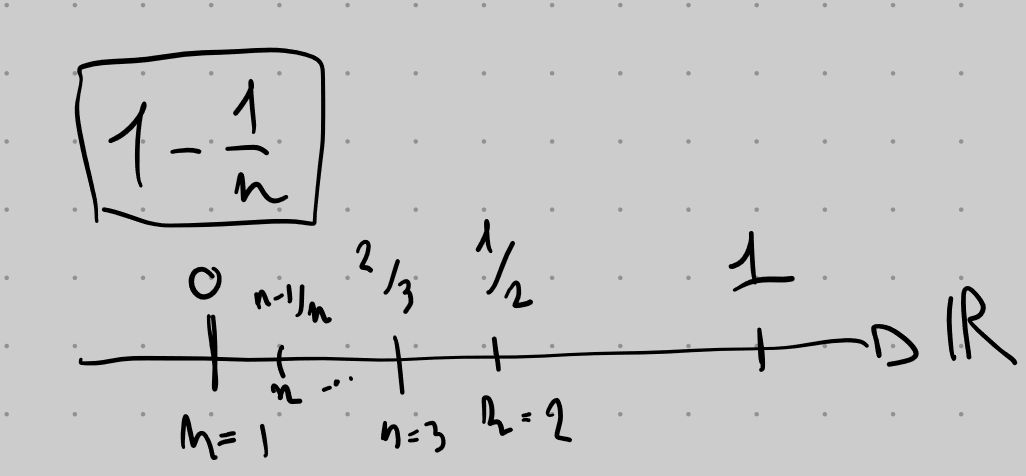 1 - 1/n
0 n-1/n 2/3 1/2 1
n ... ℝ
n=1 n=3 n=2